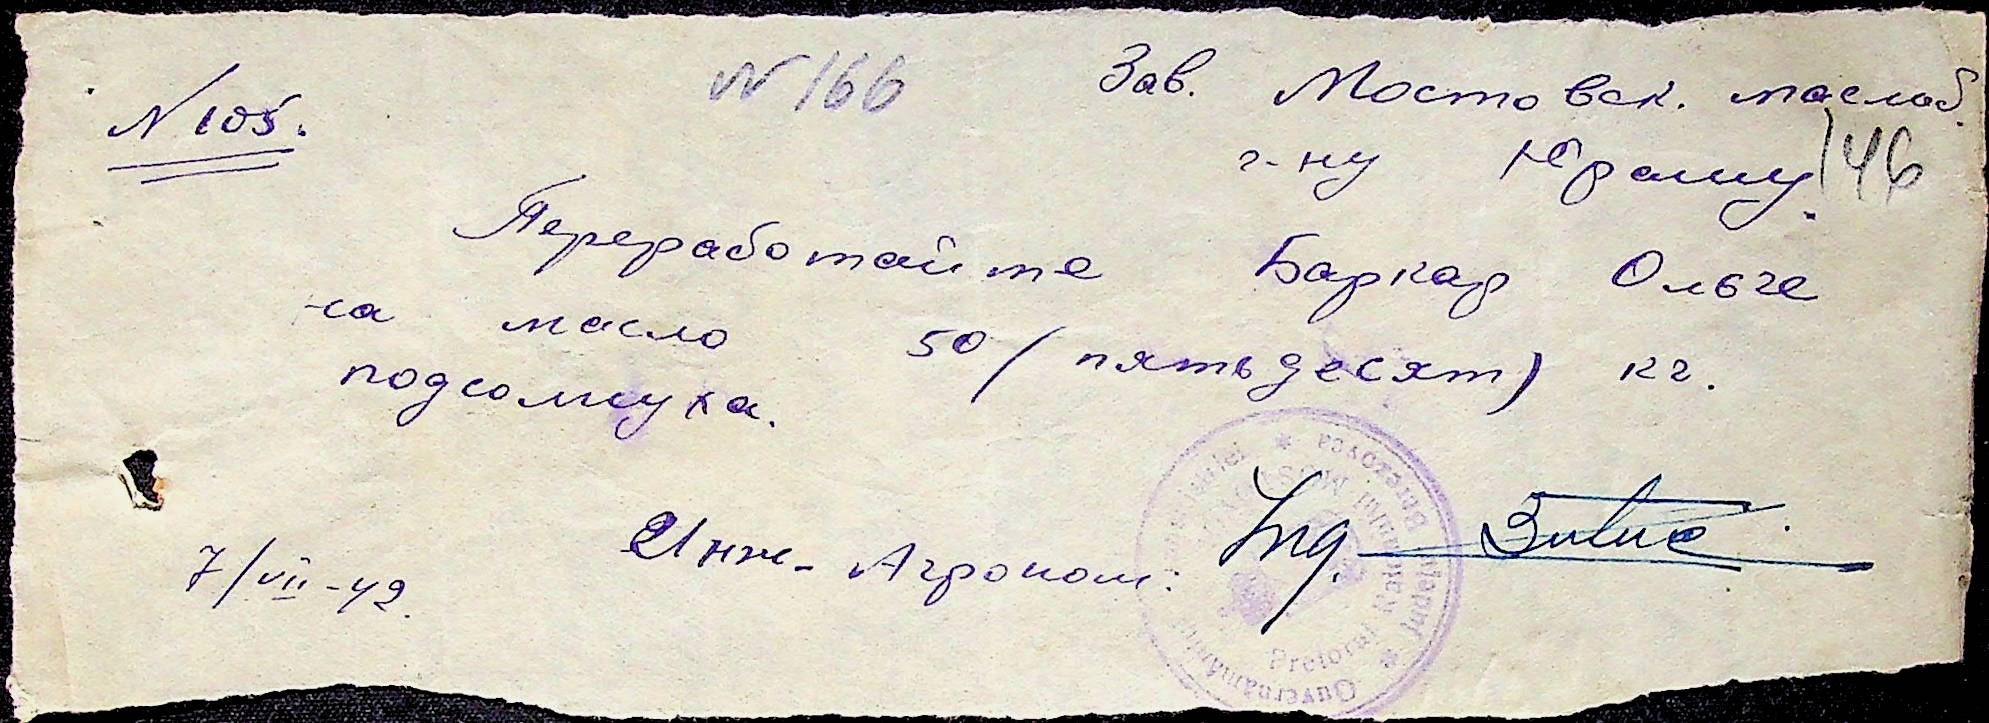 N 105.
N 166
Зав. Мостовск. маслоб.
г-ну Крашу.
146
Переработайте Баркар Ольге
на масло 50 (пятьдесят) кг.
подсолнуха.
Инж- Агроном: Ing.
7/VII-42.
Guvernământul Transnistriei * Judeţul Berezovca *
Pretorul Raionului Mostovoi